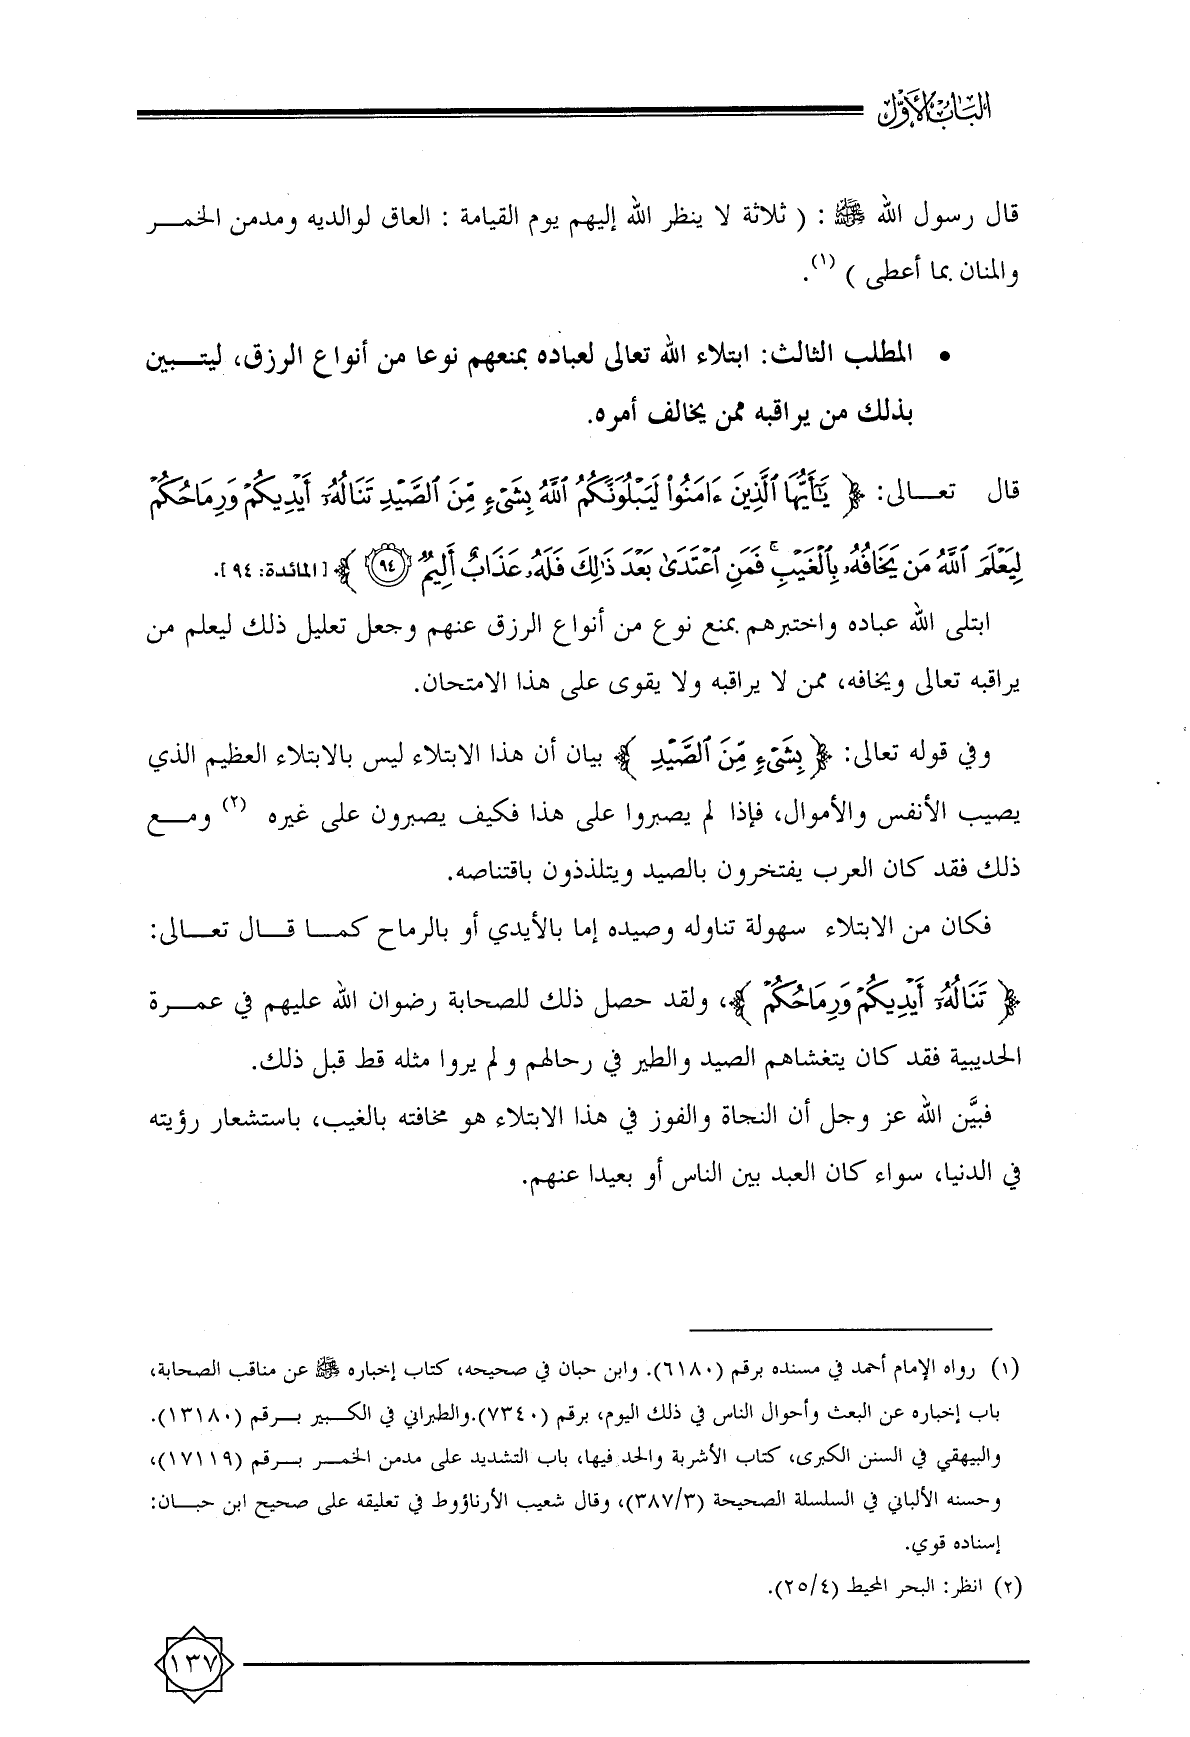 الباب الأول
قال رسول الله ﷺ : ( ثلاثة لا ينظر الله إليهم يوم القيامة : العاق لوالديه ومدمن الخمـــر
والمنان بما أعطى ) (١).
• المطلب الثالث: ابتلاء الله تعالى لعباده بمنعهم نوعا من أنواع الرزق، ليتـــبين
بذلك من يراقبه ممن يخالف أمره.
قال تعـــالى: ﴿ يَٰٓأَيُّهَا ٱلَّذِينَ ءَامَنُوا۟ لَيَبْلُوَنَّكُمُ ٱللَّهُ بِشَىْءٍ مِّنَ ٱلصَّيْدِ تَنَالُهُۥٓ أَيْدِيكُمْ وَرِمَاحُكُمْ
لِيَعْلَمَ ٱللَّهُ مَن يَخَافُهُۥ بِٱلْغَيْبِ ۚ فَمَنِ ٱعْتَدَىٰ بَعْدَ ذَٰلِكَ فَلَهُۥ عَذَابٌ أَلِيمٌ ٩٤ ﴾ [المائدة: ٩٤].
ابتلى الله عباده واختبرهم بمنع نوع من أنواع الرزق عنهم وجعل تعليل ذلك ليعلم من
يراقبه تعالى ويخافه، ممن لا يراقبه ولا يقوى على هذا الامتحان.
وفي قوله تعالى: ﴿ بِشَىْءٍ مِّنَ ٱلصَّيْدِ ﴾ بيان أن هذا الابتلاء ليس بالابتلاء العظيم الذي
يصيب الأنفس والأموال، فإذا لم يصبروا على هذا فكيف يصبرون على غيره (٢) ومـــع
ذلك فقد كان العرب يفتخرون بالصيد ويتلذذون باقتناصه.
فكان من الابتلاء سهولة تناوله وصيده إما بالأيدي أو بالرماح كمـــا قـــال تعـــالى:
﴿ تَنَالُهُۥٓ أَيْدِيكُمْ وَرِمَاحُكُمْ ﴾، ولقد حصل ذلك للصحابة رضوان الله عليهم في عمـــرة
الحديبية فقد كان يتغشاهم الصيد والطير في رحالهم ولم يروا مثله قط قبل ذلك.
فبيَّن الله عز وجل أن النجاة والفوز في هذا الابتلاء هو مخافته بالغيب، باستشعار رؤيته
في الدنيا، سواء كان العبد بين الناس أو بعيدا عنهم.
(١) رواه الإمام أحمد في مسنده برقم (٦١٨٠). وابن حبان في صحيحه، كتاب إخباره ﷺ عن مناقب الصحابة،
باب إخباره عن البعث وأحوال الناس في ذلك اليوم، برقم (٧٣٤٠).والطبراني في الكـــبير بـــرقم (١٣١٨٠).
والبيهقي في السنن الكبرى، كتاب الأشربة والحد فيها، باب التشديد على مدمن الخمـــر بـــرقم (١٧١١٩)،
وحسنه الألباني في السلسلة الصحيحة (٣٨٧/٣)، وقال شعيب الأرناؤوط في تعليقه على صحيح ابن حبـــان:
إسناده قوي.
(٢) انظر: البحر المحيط (٢٥/٤).
١٣٧